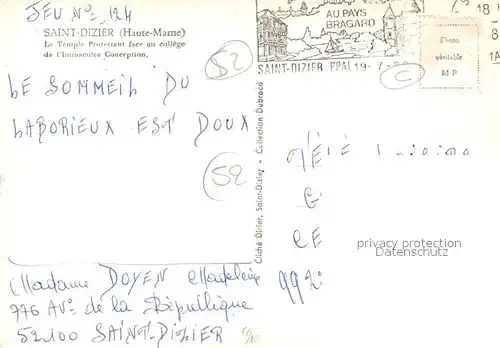 JEU No= 124
SAINT-DIZIER (Haute-Marne)
Le Temple Protestant face au collège
de l'Immaculée Conception.
52
LE SOMMEIL DU
LABORIEUX EST DOUX
52
Madame DOYEN Madeleine
776 AVe de la République
52100 SAINT-DIZIER
Cliché Dirler, Saint-Dizier - Collection Dubrocq
AU PAYS
BRAGARD
SAINT-DIZIER PPAL 19-7-
18
8
C
Photo
véritable
M P
TÉLÉ
G
CE
992
privacy protection
Datenschutz